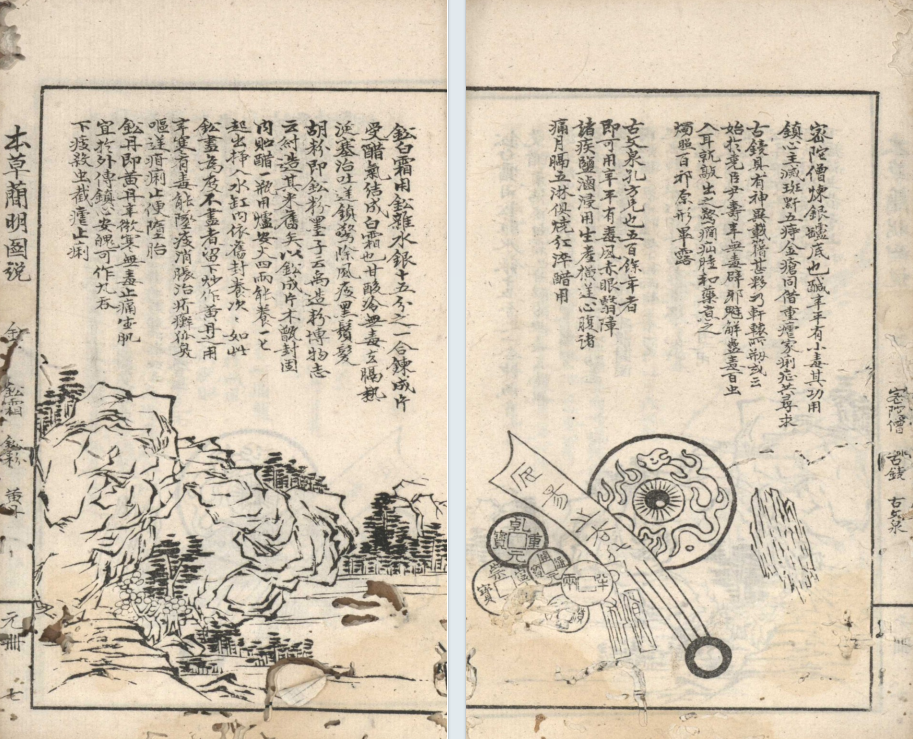 密陀僧 古錢 古文泉
密陀僧煉銀罏底也醎辛平有小毒其功用
鎮心主滅斑五痔金瘡同僧重瘧家痢症共尋求
古錢具有神異載籍甚夥乃軒轅所製或云
始於堯臣尹壽辛平無毒辟邪魅解蠱毒百虫
入耳就敲出之驚癇和藥煮之
燭照百邪原形畢露
古文泉孔方兄也五百餘年者
即可用辛平有毒風赤眼翳障
諸疾鹽滷浸用生產橫逆心腹諸
痛月膈五淋俱燒紅淬醋用
乾元重寶
鉛白霜用鉛雜水銀十五分之一合鍊成片
受醋氣結成白霜也甘酸冷無毒主膈熱
涎塞治吐逆鎮驚除風痰黑鬚髮
胡粉即鉛粉墨子云禹造粉博物志
云紂造其來舊矣以鉛成片木甑封固
內貯醋一瓶用爐安火四兩養一七
起出掃入水缸內依舊封養次次如此
鉛盡為度不盡者留下炒作黃丹之用
辛寒有毒能墜痰消脹治疥癬狐臭
嘔逆疳痢止便墮胎
鉛丹即黃丹辛微寒無毒止痛生肌
宜於外傅鎮心安魄可作丸吞
下痰殺虫截瘧止痢
本草簡明圖說 金 鉛霜 鉛粉 黃丹 元冊 七